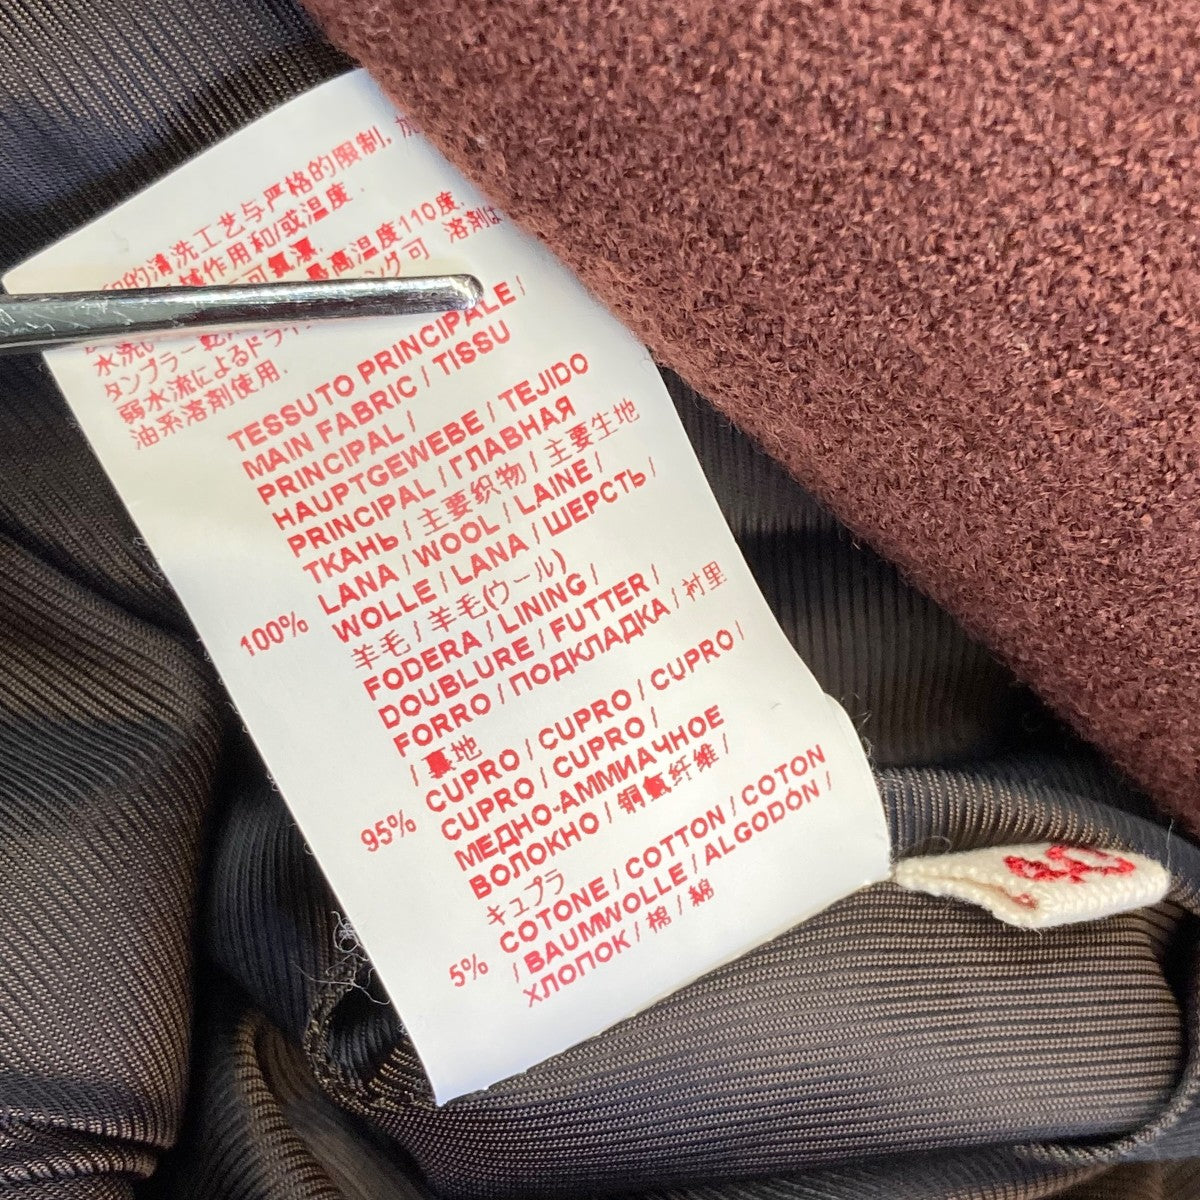 的清洗工艺与严格的限制,
作用和/或温度.
可氯漂. 最高温度110度.
ング可 溶剤は
水洗い
タンブラー乾
弱水流によるドライ
油系溶剤使用.
TESSUTO PRINCIPALE /
MAIN FABRIC / TISSU
PRINCIPAL /
HAUPTGEWEBE / TEJIDO
PRINCIPAL / ГЛАВНАЯ
ТКАНЬ / 主要织物 / 主要生地
100% LANA / WOOL / LAINE /
WOLLE / LANA / ШЕРСТЬ /
羊毛 / 羊毛(ウール)
FODERA / LINING /
DOUBLURE / FUTTER /
FORRO / ПОДКЛАДКА / 衬里
/ 裏地
95% CUPRO / CUPRO / CUPRO /
CUPRO / CUPRO /
МЕДНО-АММИАЧНОЕ
ВОЛОКНО / 铜氨纤维 /
キュプラ
5% COTONE / COTTON / COTON
/ BAUMWOLLE / ALGODÓN /
ХЛОПОК / 棉 / 綿